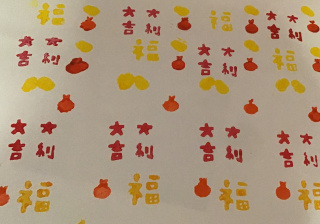 福 大吉 大利 福 大吉 大利
大吉 大利 福 大吉 大利 福
大吉 大利 大吉 大利 大吉 大利 大吉 大利
福 福 福 福